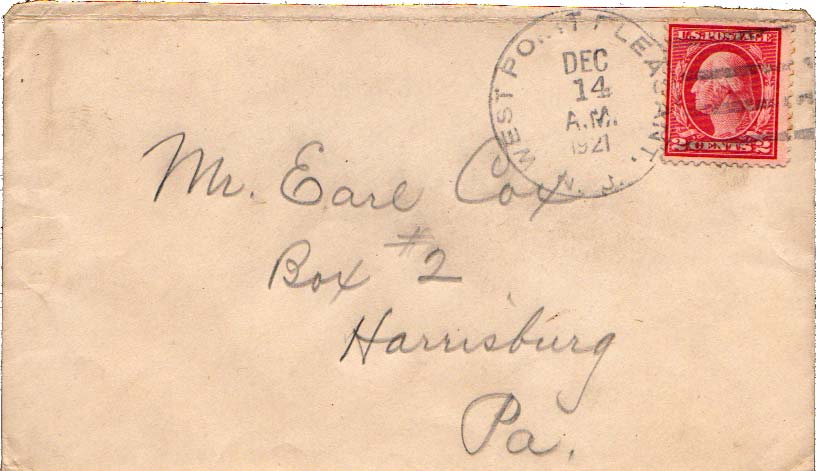 WEST POINT PLEASANT. N. J.
DEC
14
A.M.
1921
U.S. POSTAGE
2 CENTS 2
Mr. Earl Cox
Box #2
Harrisburg
Pa.